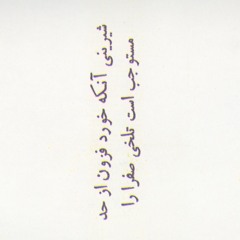 شیرینی آنکه خورد فزون از حد
مستوجب است تلخی صفرا را